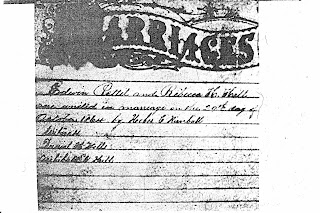 MARRIAGES
Edwin Pettet and Rebecca H. Hill
are united in marriage on the 29th day of
October by Heber C Kimball
Witness
Hill
Archibald Hill